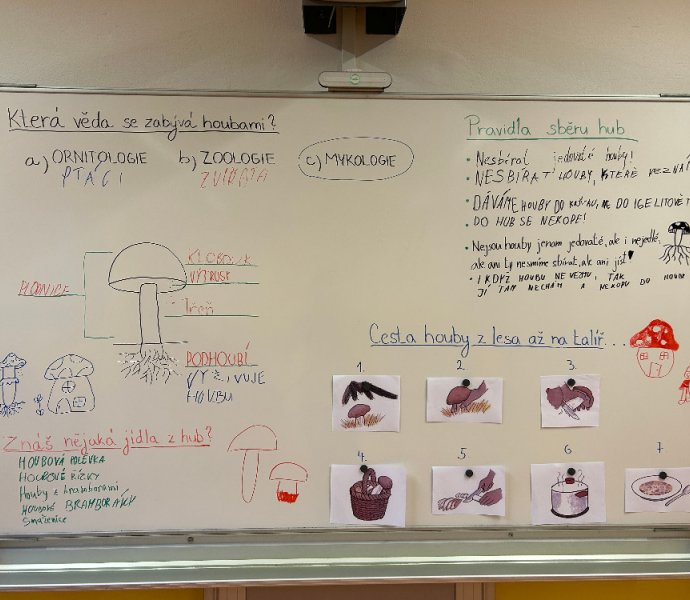 Která věda se zabývá houbami?
a) ORNITOLOGIE b) ZOOLOGIE c) MYKOLOGIE
PTÁCI ZVÍŘATA
PLODNICE
KLOBOUK
VÝTRUSY
Třeň
PODHOUBÍ
VYŽIVUJE
HOUBU
Znáš nějaká jídla z hub?
HOUBOVÁ POLÉVKA
HOUBOVÉ ŘÍZKY
Houby s bramborami
HOUBOVÉ BRAMBORÁKY
Smaženice
Pravidla sběru hub
• Nesbírat jedovaté houby!
• NESBÍRAT HOUBY, KTERÉ
• DÁVÁME HOUBY DO KOŠÍKU, NE DO IGELITOVÉ
• DO HUB SE NEKOPE!
• Nejsou houby jenom jedovaté, ale i nejedlé,
ale ani ty nesmíme sbírat, ale ani jíst!
• I KDYŽ HOUBU NEVEZMU, TAK
JÍ TAM NECHÁM A NEKOPU DO HOUBY
Cesta houby z lesa až na talíř...
1. 2. 3.
4. 5. 6 7.